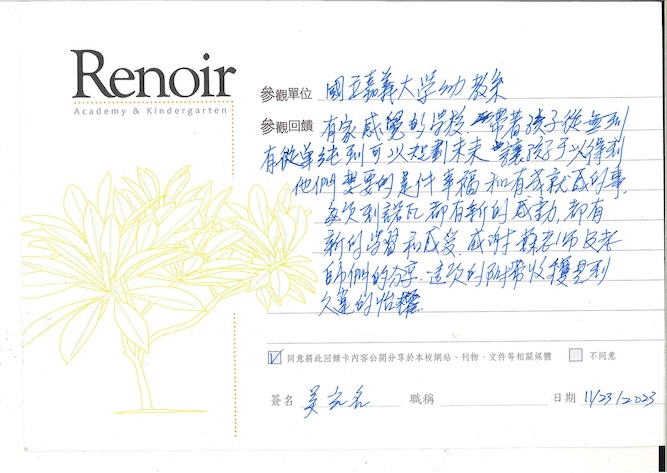 Renoir
Academy & Kindergarten
參觀單位 國立嘉義大學幼教系
參觀回饋 有家感覺的學校. 帶著孩子從無到
有從單純到可以規劃未來 讓孩子可以得到
他們想要的是件幸福和有成就感的事.
每次到諾瓦都有新的感動, 都有
新的學習和感受. 感謝蘇老師及老
師們的分享. 這次的附帶收穫是到
久違的怡
同意將此回饋卡內容公開分享於本校網站、刊物、文件等相關媒體 不同意
簽名 職稱 日期 11/23/2023